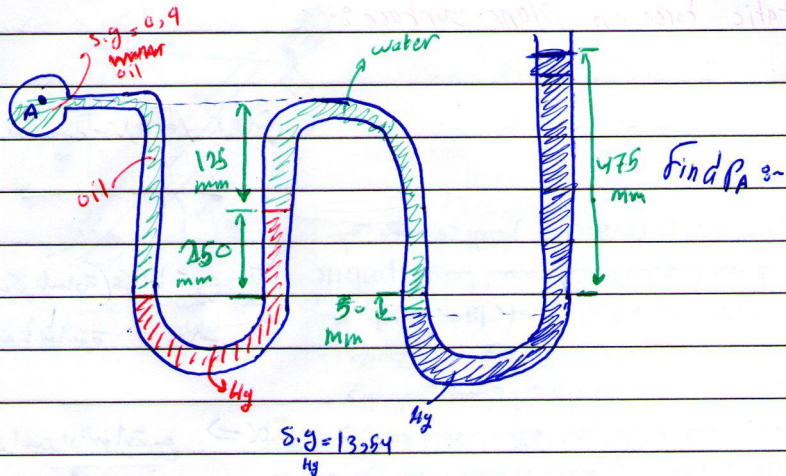 S.g = 0,9
oil
A
water
oil
125
mm
250
mm
50
mm
475
mm
Find PA :-
Hg
Hg
S.g = 13,54
Hg